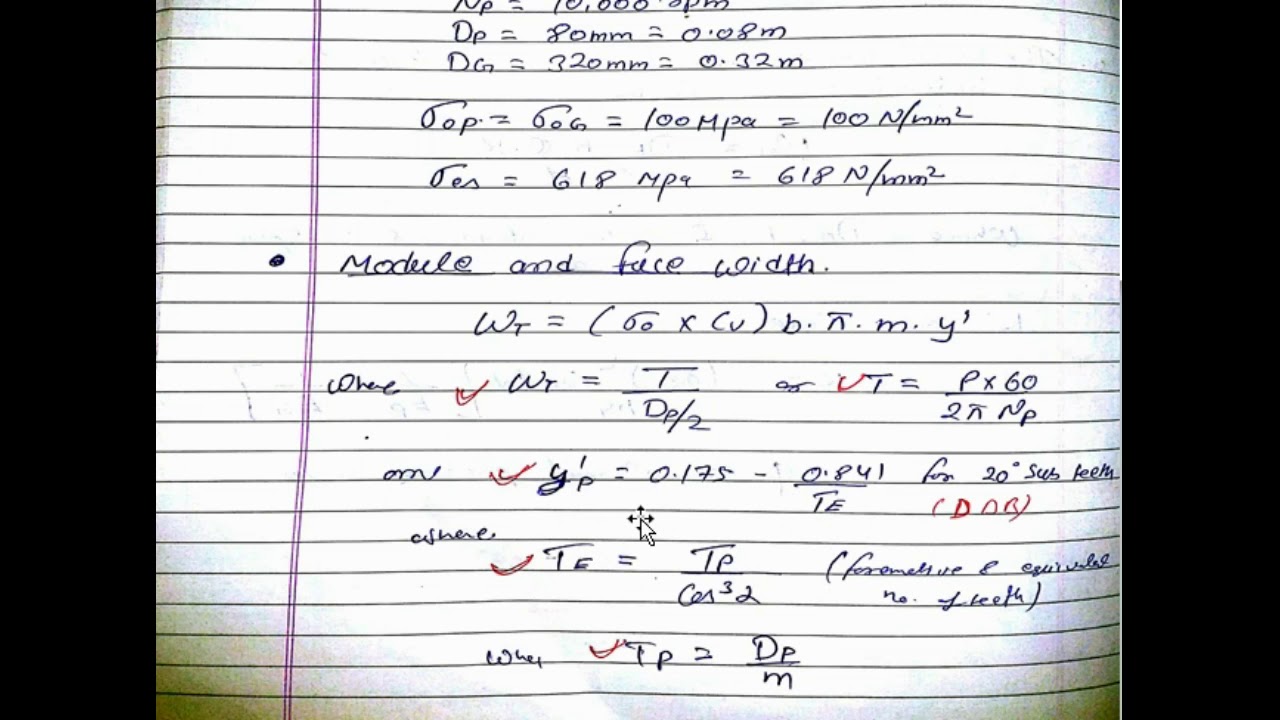 NP = 10,000 rpm
DP = 80mm = 0.08m
DG = 320mm = 0.32m
σop = σoG = 100 Mpa = 100 N/mm²
σes = 618 Mpa = 618 N/mm²
• Module and face width.
WT = (σo × Cv) b. π. m. y'
where ✓ WT = T / (DP/2) or ✓ T = P×60 / 2π NP
and ✓ y'P = 0.175 - 0.841 / TE for 20° sub teeth
(DDB)
where ✓ TE = TP / Cos³α (formative & equivalent
no. of teeth)
when ✓ TP = DP / m